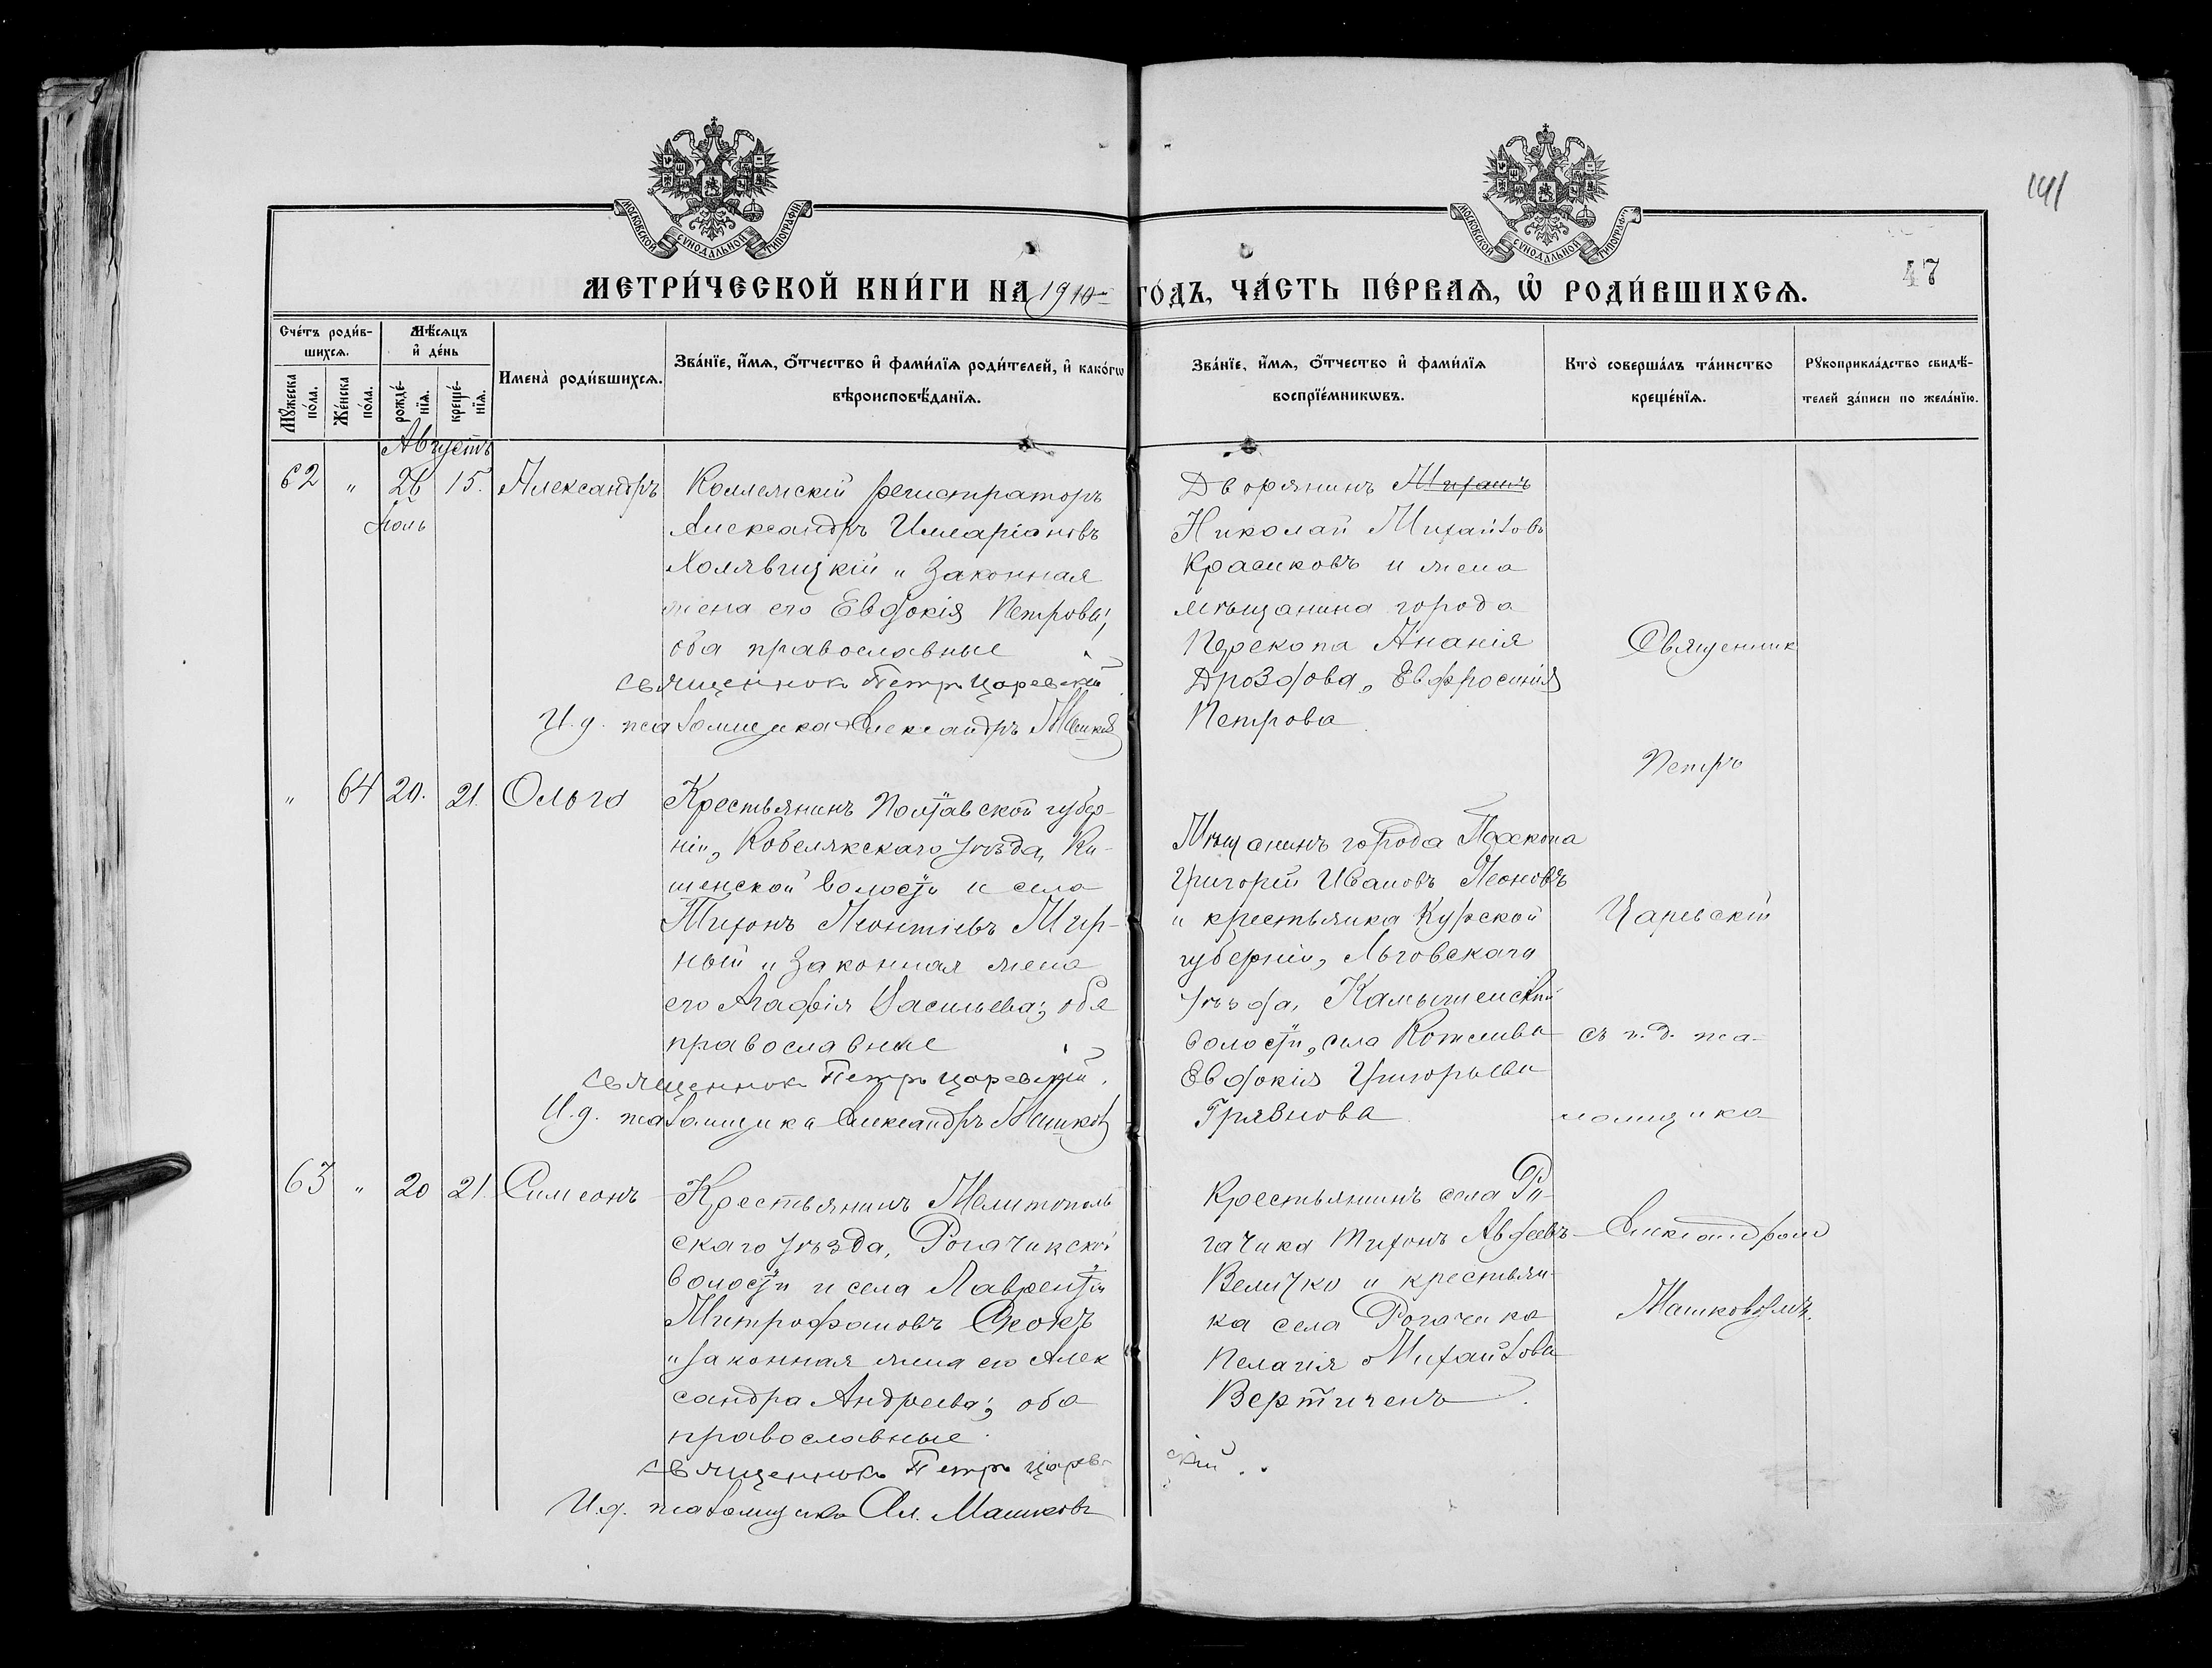 141
47
МОСКОВСКОЙ СѴНОДАЛЬНОЙ ТИПОГРАФІИ
МОСКОВСКОЙ СѴНОДАЛЬНОЙ ТИПОГРАФІИ
МЕТРИ́ЧЕСКОЙ КНИ́ГИ НА 1910 ГО́ДЪ, ЧА́СТЬ ПЕ́РВАѦ, Ѡ РОДИ́ВШИХСѦ.
Сче́тъ роди́в-
шихсѧ.
Мѣ́сѧцъ
и҆ де́нь
Мꙋ́жеска по́ла.
Же́нска по́ла.
рожде́-
нїѧ.
креще́-
нїѧ.
Имена̀ роди́вшихсѧ.
Зва́нїе, и҆́мѧ, ѻ҆́тчество и҆ фами́лїѧ роди́телей, и҆ како́гѡ
вѣроисповѣ́данїѧ.
Зва́нїе, и҆́мѧ, ѻ҆́тчество и҆ фами́лїѧ
воспрїе́мникѡвъ.
Кто̀ соверша́лъ та́инство
креще́нїѧ.
Рꙋкоприкла́дство свидѣ́-
телей за́писи по жела́нїю.
Августъ
62 " 26 15. Александръ
Іюль
Коллежскій регистраторъ
Александръ Илларіоновъ
Холявицкій и законная
жена его Евдокія Петрова;
оба православные
Священникъ Петръ Царевскій
И. д. псаломщика Александръ Машковъ
Дворянинъ Михаилъ
Николай Михайловъ
Красиковъ и жена
мѣщанина города
Перекопа Ананія
Дроздова, Евфросинія
Петрова
" 64 20. 21. Ольга
Крестьянинъ Полтавской губер-
ніи, Кобелякскаго уѣзда, Ки-
шенской волости и села
Тихонъ Леонтіевъ Мир-
ный и законная жена
его Агафія Васильева; оба
православные
Священникъ Петръ Царевскій.
И. д. псаломщика Александръ Машковъ
Мѣщанинъ города Перекопа
Григорій Ивановъ Леоновъ
и крестьянка Курской
губерніи, Льговскаго
уѣзда, Камышенской
волости, села
Евдокія Григорьева
Грязнова
63 " 20 21. Симеонъ
Крестьянинъ Мелитополь
скаго уѣзда, Рогачикской
волости и села Лаврентій
Митрофановъ Скокъ
и законная жена его Алек
сандра Андреева; оба
православные.
Священникъ Петръ Царев-
скій.
И. д. псаломщика Ал. Машковъ
Крестьянинъ села Ро-
гачика Тихонъ Авдеевъ
Величко и крестьян-
ка села Рогачика
Пелагія Михайлова
Вертиченъ.
Священникъ
Петръ
Царевскій
съ и. д. пса-
ломщика
Александромъ
Машковымъ.